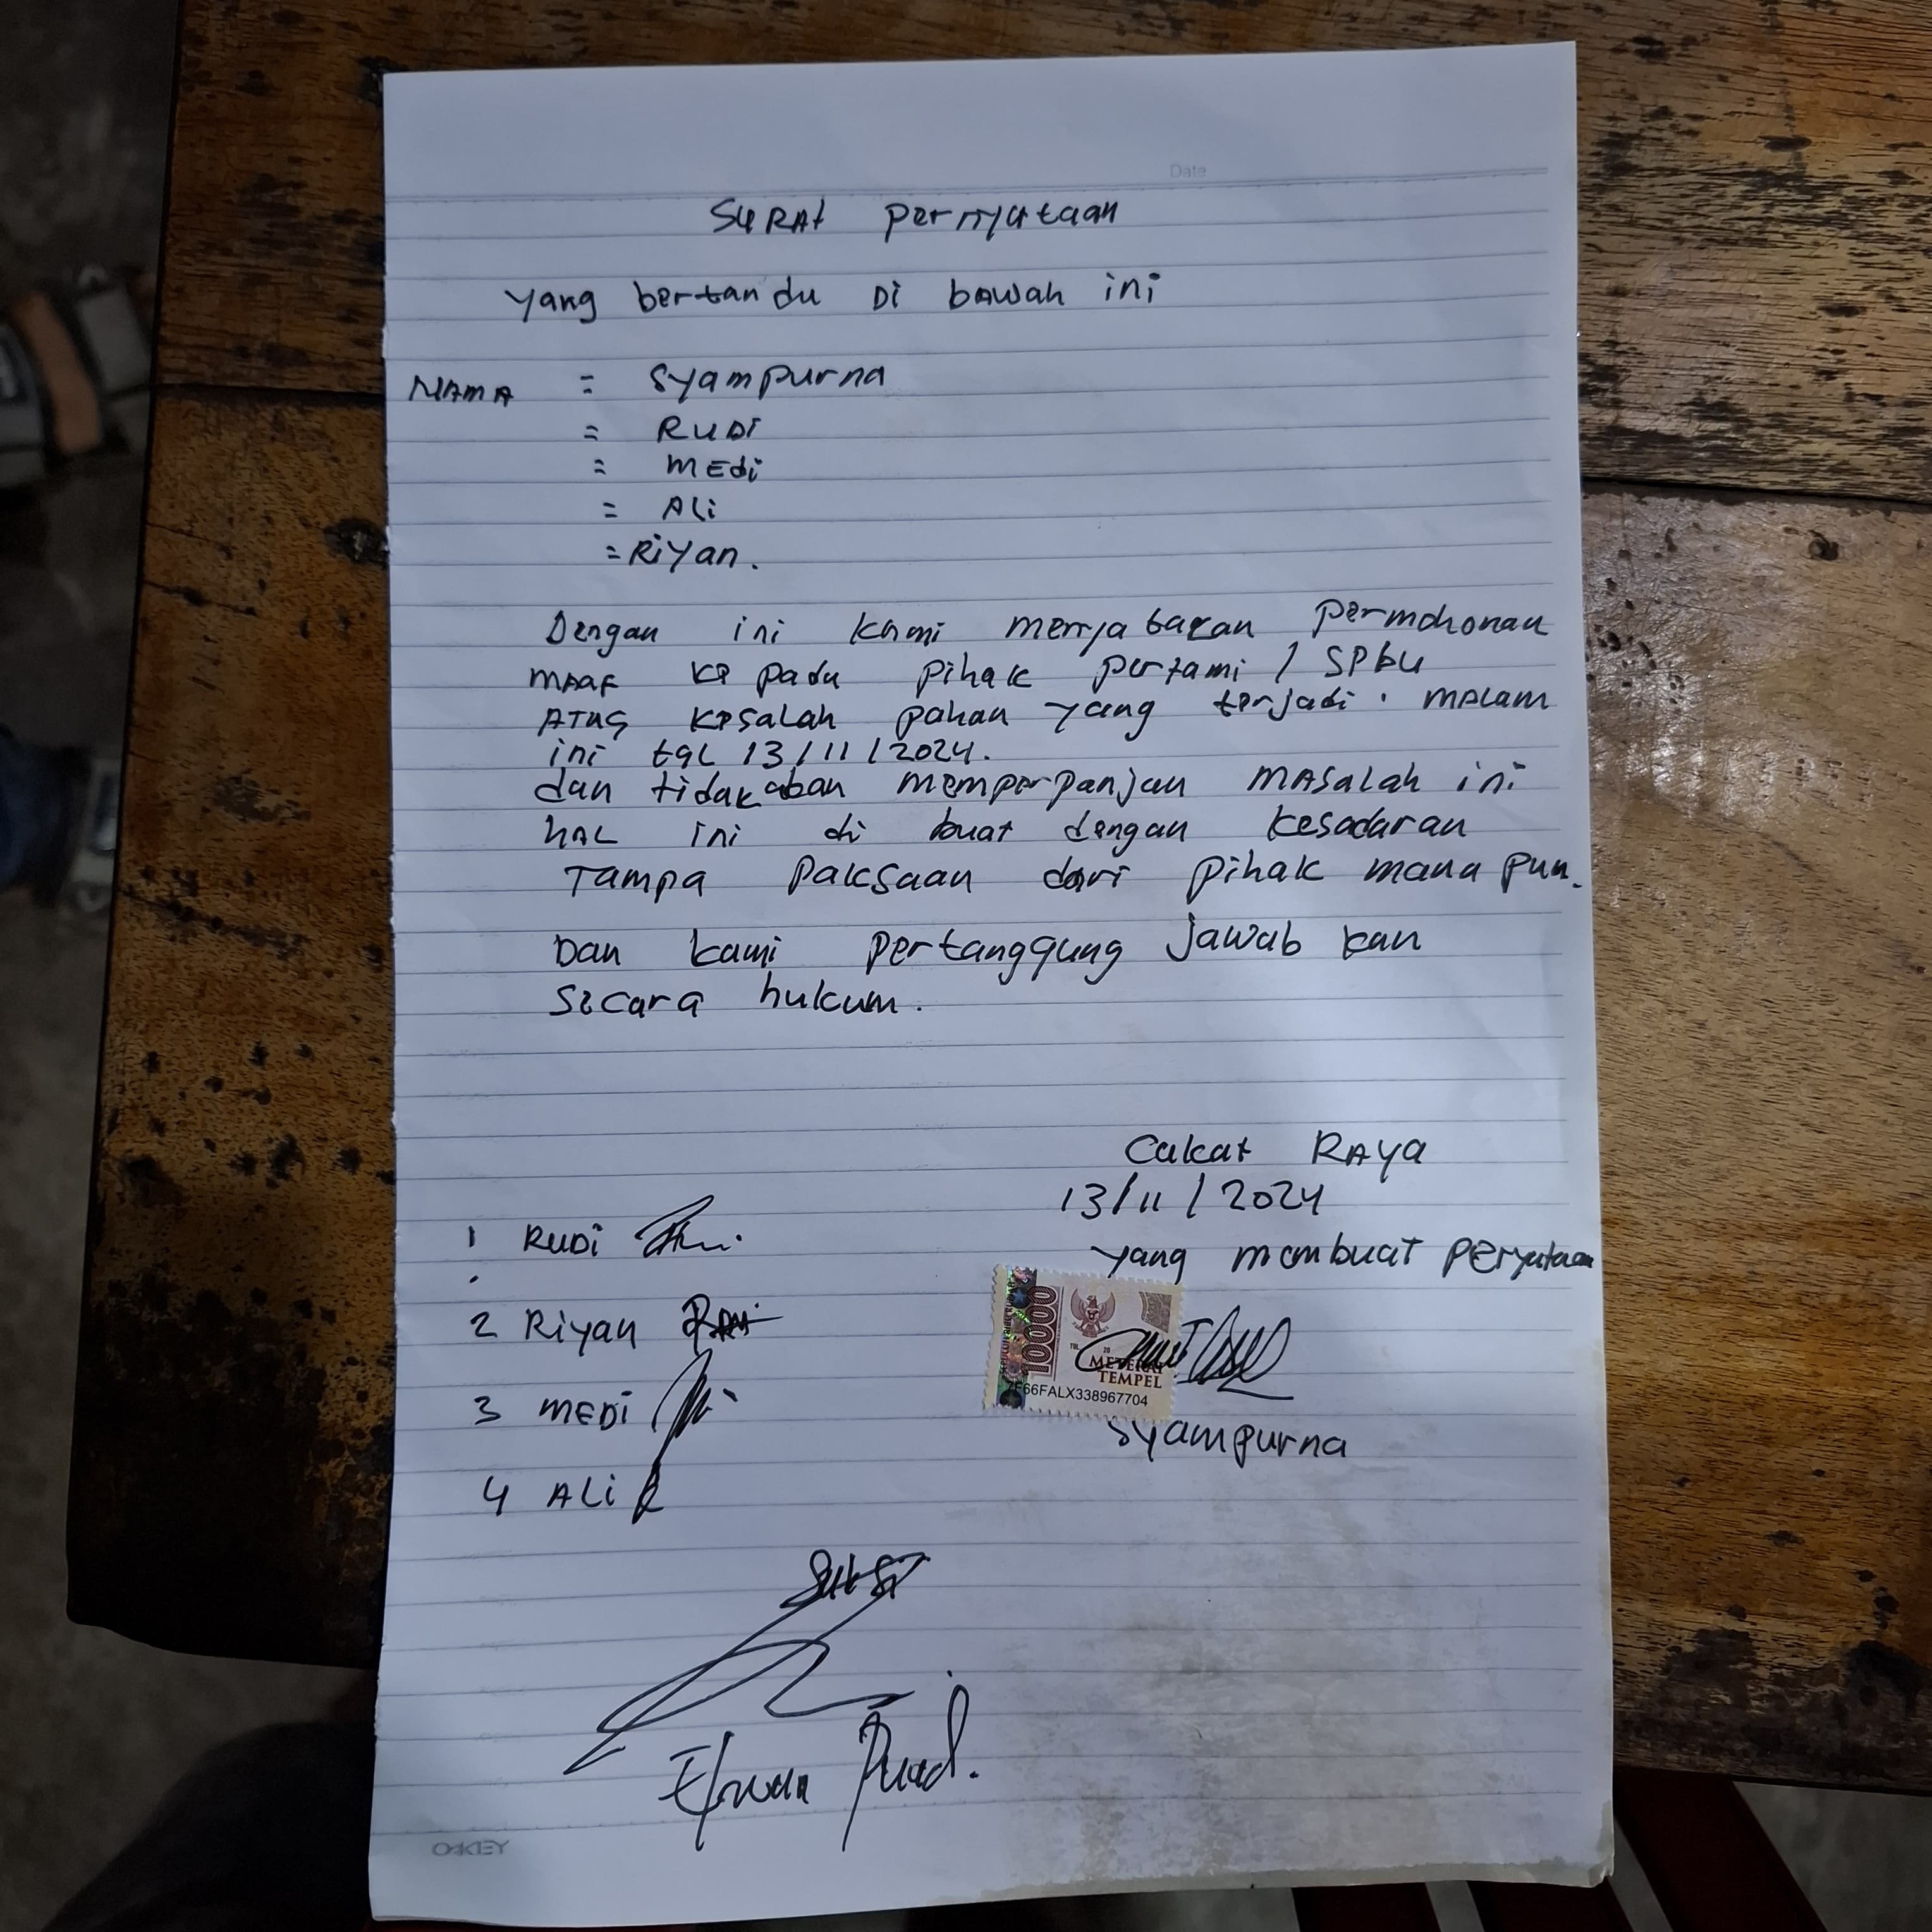 Date
SURAt pernyataan
yang bertanda Di bawah ini
NAMA = Syampurna
= RUDi
= MEdi
= ALi
= RiYan.
Dengan ini kami menyatakan permohonan
MAAF kepada pihak pertami / SPbu
ATAS kesalah pahan yang terjadi malam
ini tgl 13/11/2024.
dan tidak akan memperpanjan MASalah ini
hAL ini di buat dengan kesadaran
Tampa paksaan dari pihak mana pun.
Dan kami pertanggung jawab kan
Secara hukum.
Cakat RAYa
13/11/2024
yang membuat peryataan
1 RUDi
2 Riyan
3 MEDi
4 ALi
10000
TGL 20
METERAI
TEMPEL
66FALX338967704
Syampurna
Saksi
OAKEY